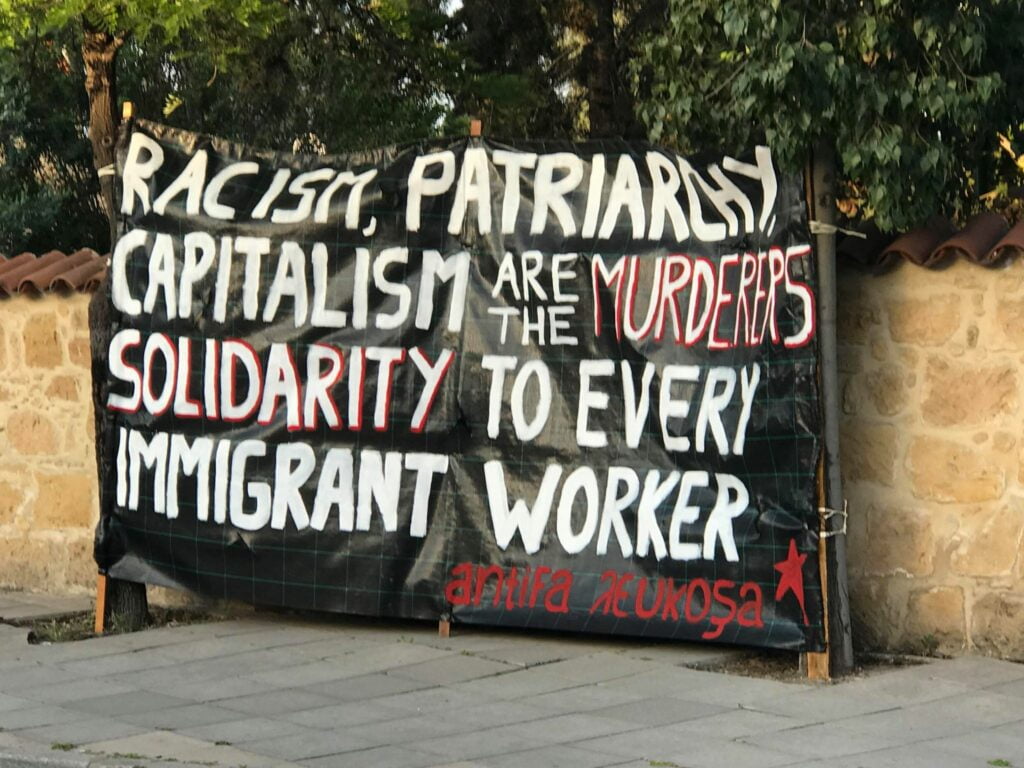 RACISM, PATRIARCHY,
CAPITALISM ARE THE MURDERERS
SOLIDARITY TO EVERY
IMMIGRANT WORKER
antifa λευκοşa